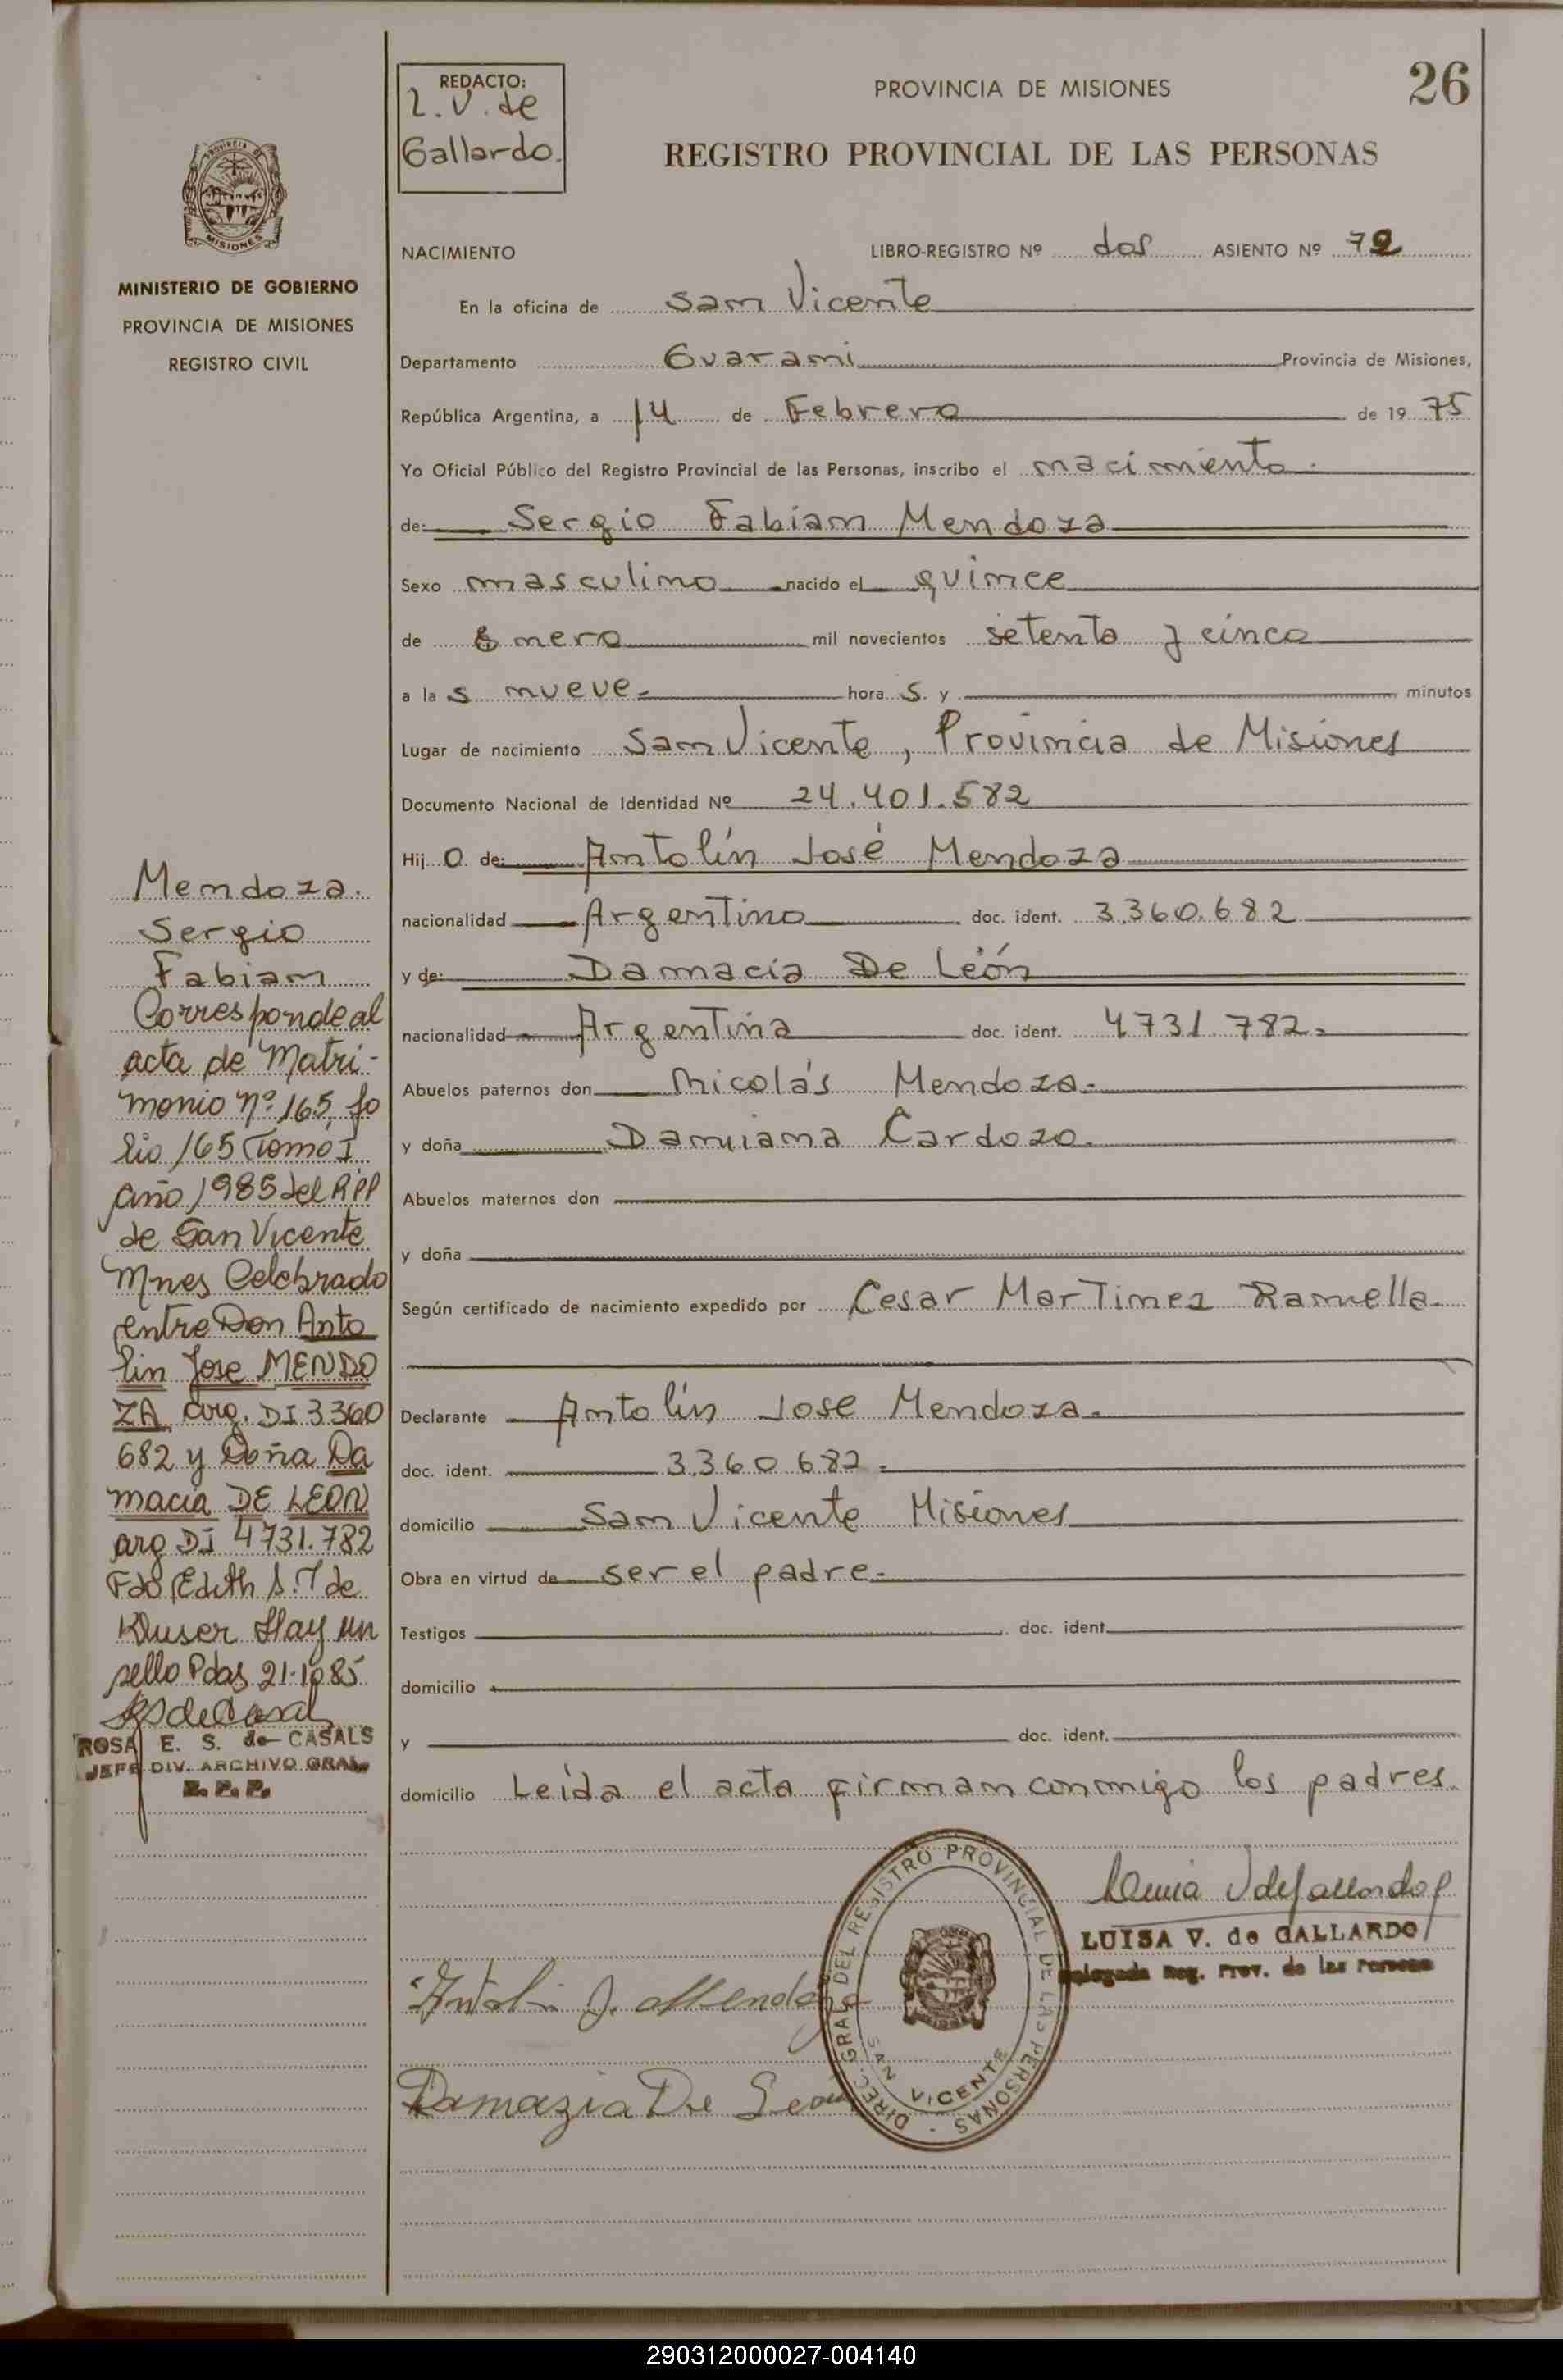 REDACTO:
L. V. de
Gallardo.
PROVINCIA DE MISIONES
26
REGISTRO PROVINCIAL DE LAS PERSONAS
PROVINCIA DE
MISIONES
MINISTERIO DE GOBIERNO
PROVINCIA DE MISIONES
REGISTRO CIVIL
NACIMIENTO LIBRO-REGISTRO Nº dos ASIENTO Nº 72
En la oficina de San Vicente
Departamento Guaraní Provincia de Misiones,
República Argentina, a 14 de Febrero de 1975
Yo Oficial Público del Registro Provincial de las Personas, inscribo el nacimiento.
de: Sergio Fabian Mendoza
Sexo masculino nacido el quince
de Enero mil novecientos setenta y cinco
a las nueve- horas y minutos
Lugar de nacimiento San Vicente, Provincia de Misiones
Documento Nacional de Identidad Nº 24.401.582
Hijo de: Antolín José Mendoza
nacionalidad Argentino doc. ident. 3.360.682
y de: Damacia De León
nacionalidad Argentina doc. ident. 4731.782.
Abuelos paternos don Nicolás Mendoza-
y doña Damiana Cardozo.
Abuelos maternos don
y doña
Según certificado de nacimiento expedido por Cesar Martinez Ramella.
Declarante Antolín Jose Mendoza.
doc. ident. 3.360.682.
domicilio San Vicente Misiones
Obra en virtud de ser el padre.
Testigos doc. ident.
domicilio
y doc. ident.
domicilio Leída el acta firman conmigo los padres.
Mendoza.
Sergio
Fabian
Corresponde al
acta de Matri-
monio nº 165, fo
lio 165 Tomo I
año 1985 del RPP
de San Vicente
Mnes Celebrado
entre Don Anto
lin Jose MENDO
ZA arg. DI 3360
682 y Doña Da
macia DE LEON
arg DI 4731.782
Fdo Edith S. T de
Kluser Hay un
sello Pdas 21-10 85
RSdeCasals
ROSA E. S. de CASALS
JEFE DIV. ARCHIVO GRAL
R. P. P.
LUISA V. de GALLARDO
Delegada Reg. Prov. de las Personas
Antolin J. Mendoza
Damazia De Leon
DIREC. GRAL DEL REGISTRO PROVINCIAL DE LAS PERSONAS
SAN VICENTE
290312000027-004140